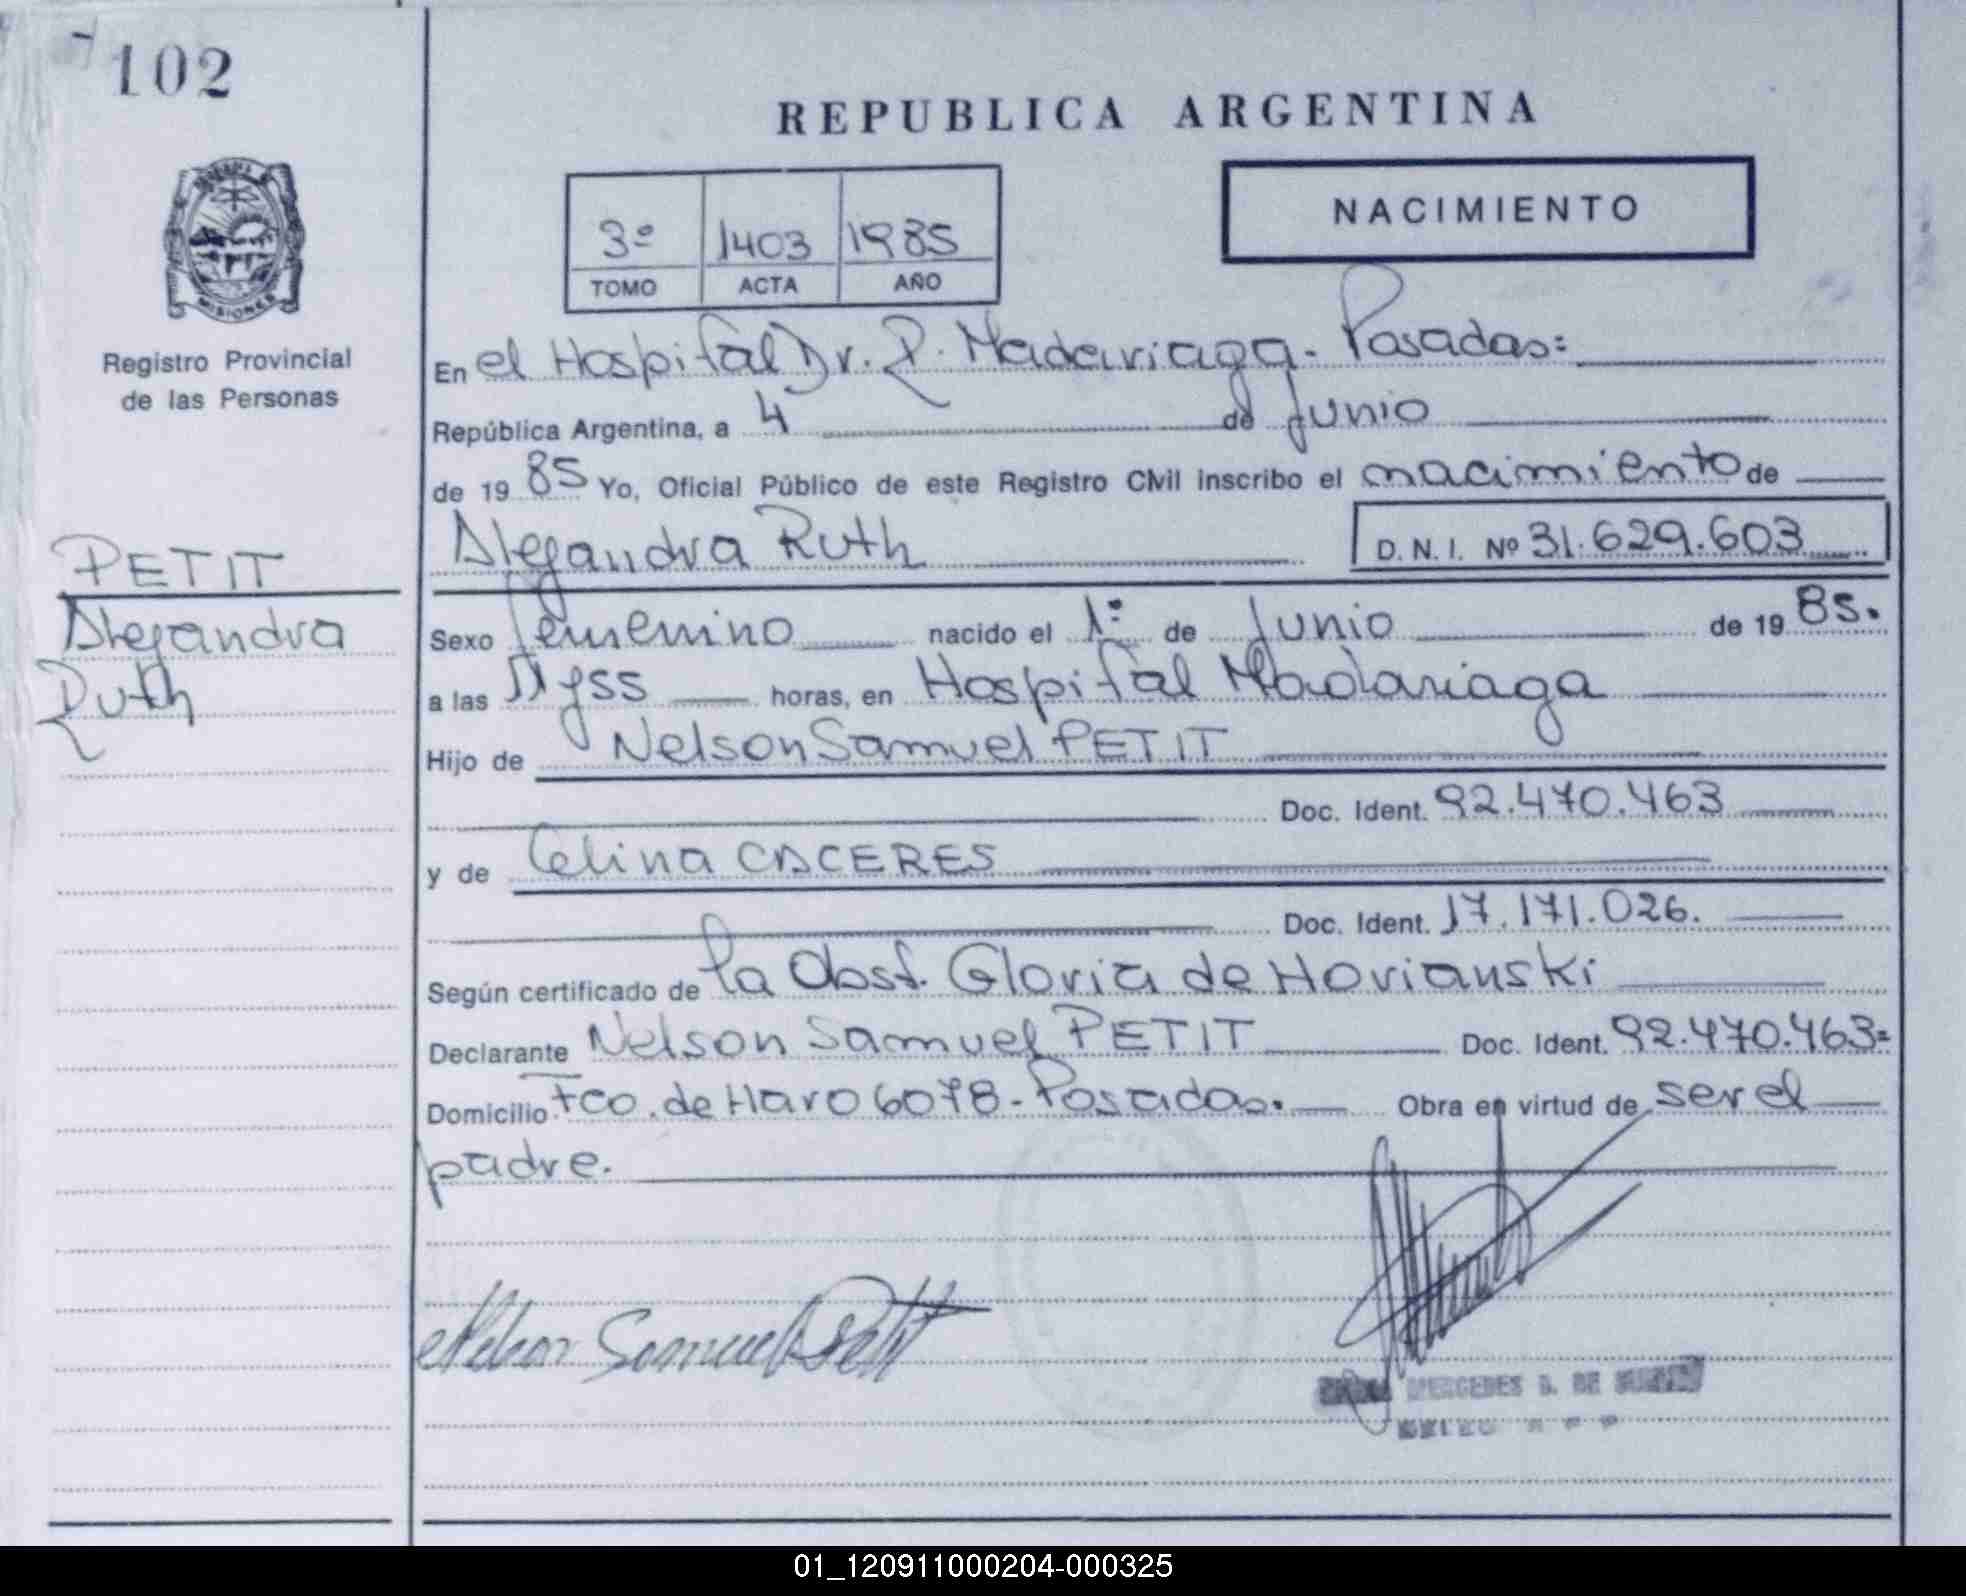 102
REPUBLICA ARGENTINA
3º 1403 1985
TOMO ACTA AÑO
NACIMIENTO
MISIONES
Registro Provincial
de las Personas
En el Hospital Dr. R. Madariaga - Posadas:
República Argentina, a 4 de Junio
de 1985 Yo, Oficial Público de este Registro Civil inscribo el nacimiento de
Alejandra Ruth D.N.I. Nº 31.629.603
PETIT
Alejandra
Ruth
Sexo femenino nacido el 1º de Junio de 1985.
a las horas, en Hospital Madariaga
Hijo de Nelson Samuel PETIT
Doc. Ident. 92.470.463
y de Celina CACERES
Doc. Ident. 17.171.026.
Según certificado de la Obst. Gloria de Horianski
Declarante Nelson Samuel PETIT Doc. Ident. 92.470.463=
Domicilio Fco. de Haro 6078 - Posadas. Obra en virtud de ser el
padre.
Nelson Samuel Petit
MERCEDES B. DE
01_120911000204-000325